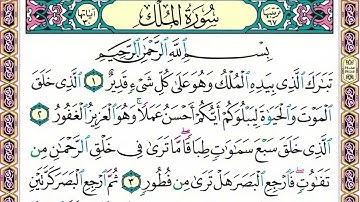 سُورَةُ الْمُلْكِ
بِسْمِ اللَّهِ الرَّحْمَٰنِ الرَّحِيمِ
تَبَٰرَكَ الَّذِي بِيَدِهِ الْمُلْكُ وَهُوَ عَلَىٰ كُلِّ شَيْءٍ قَدِيرٌ ١ الَّذِي خَلَقَ
الْمَوْتَ وَالْحَيَوٰةَ لِيَبْلُوَكُمْ أَيُّكُمْ أَحْسَنُ عَمَلًا ۚ وَهُوَ الْعَزِيزُ الْغَفُورُ ٢
الَّذِي خَلَقَ سَبْعَ سَمَٰوَٰتٍ طِبَاقًا ۖ مَّا تَرَىٰ فِي خَلْقِ الرَّحْمَٰنِ مِن
تَفَٰوُتٍ ۖ فَارْجِعِ الْبَصَرَ هَلْ تَرَىٰ مِن فُطُورٍ ٣ ثُمَّ ارْجِعِ الْبَصَرَ كَرَّتَيْنِ